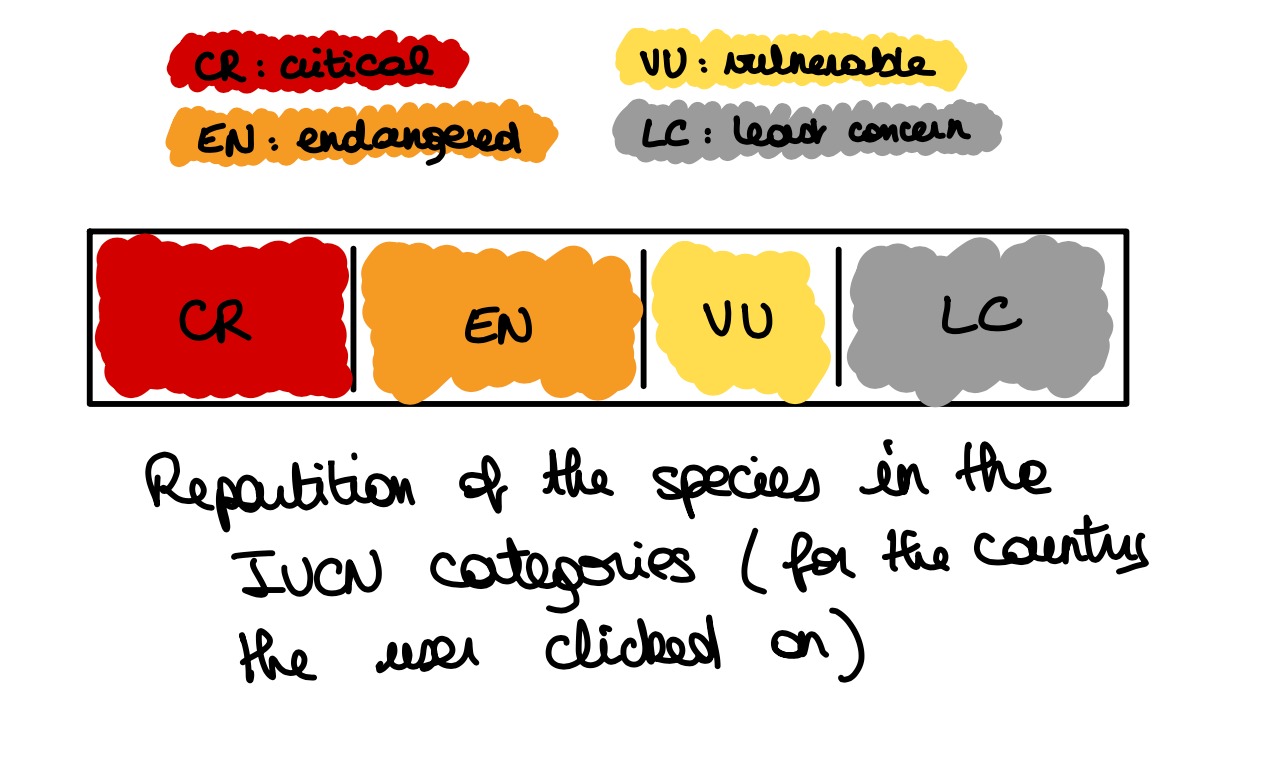 CR : critical
VU : vulnerable
EN : endangered
LC : least concern
CR
EN
VU
LC
Repartition of the species in the
IUCN categories (for the country
the user clicked on)